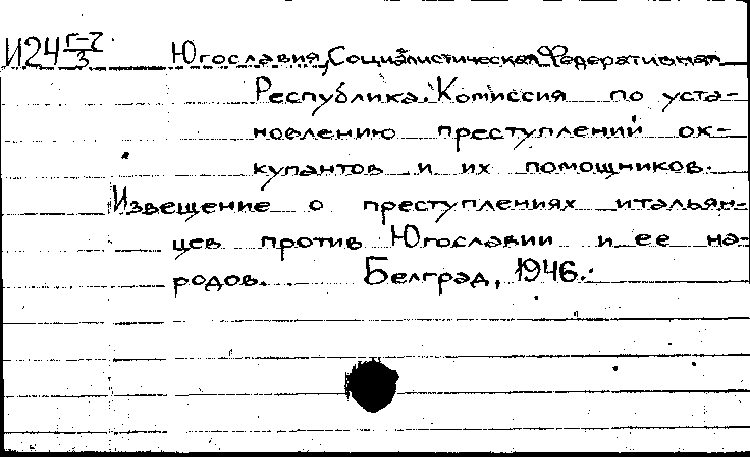 И24 г-7/3 Югославия, Социалистическая Федеративная
Республика. Комиссия по уста-
новлению преступлений ок-
купантов и их помощников.
Извещение о преступлениях итальян-
цев против Югославии и ее на-
родов. Белград, 1946.